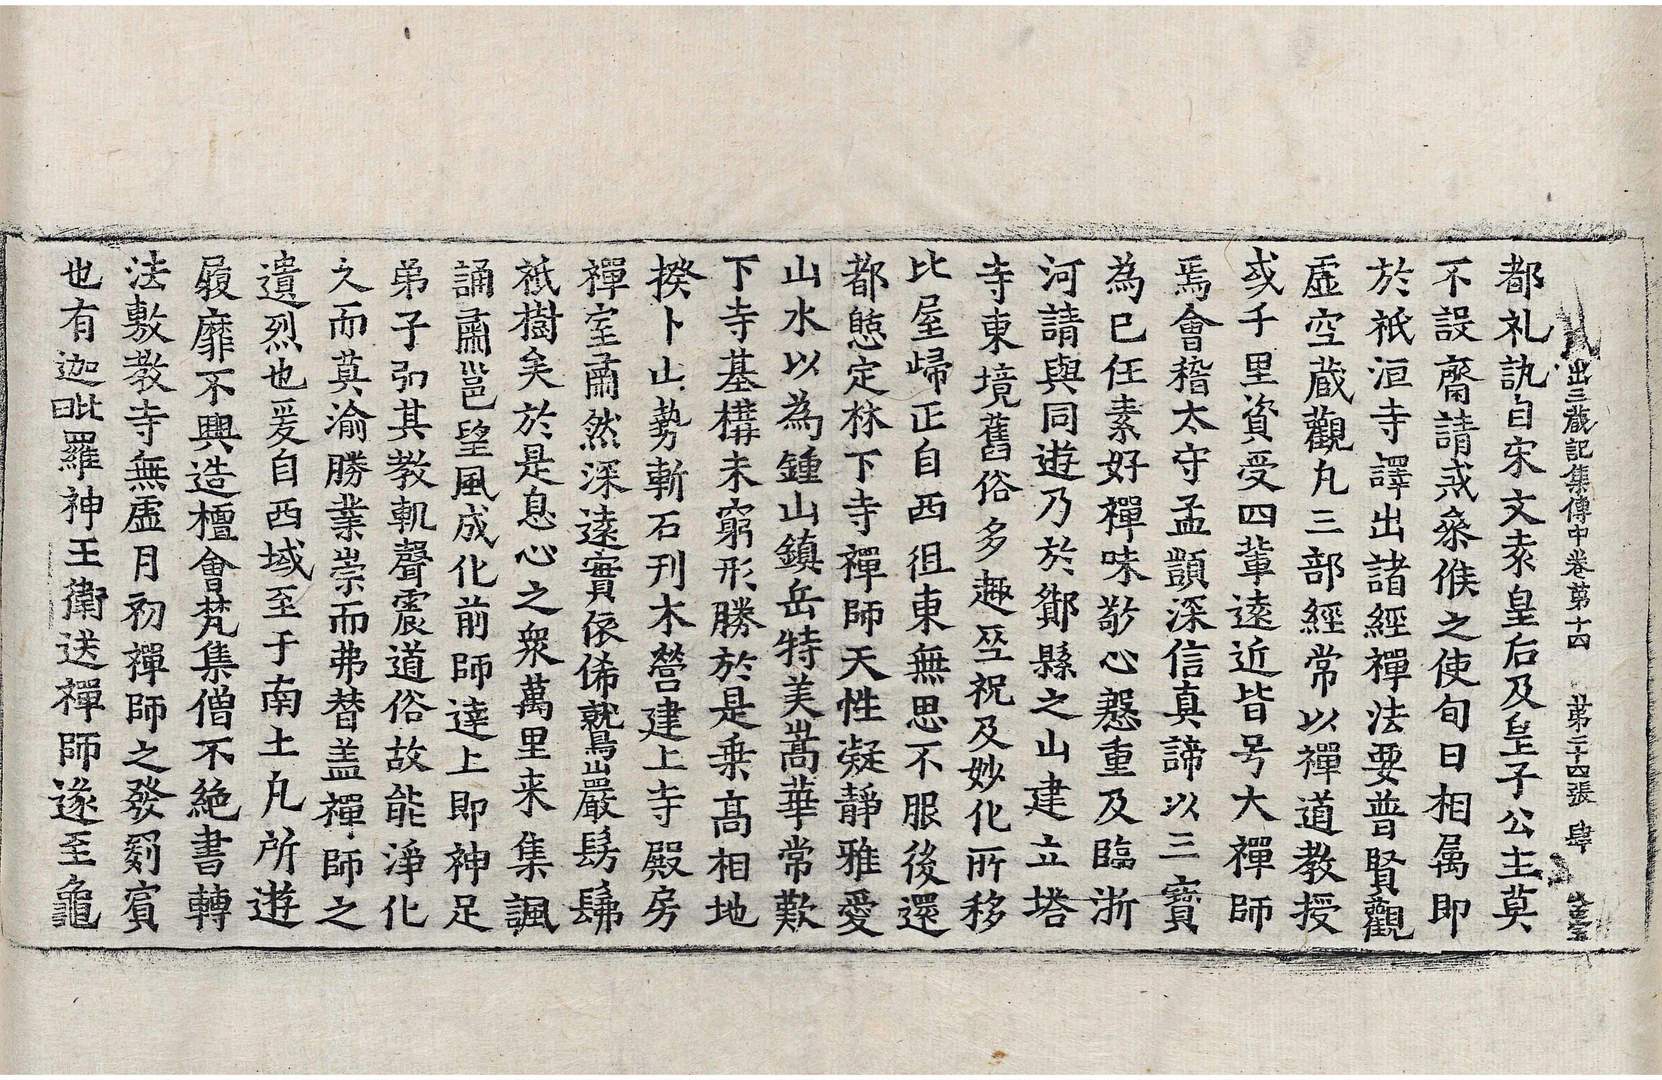 出三藏記集傳中卷第十四　第二十四張　肆
都礼訙自宋文袁皇后及皇子公主莫
不設齋請戒叅候之使旬日相属即
於祇洹寺譯出諸經禪法要普賢觀
虛空藏觀凡三部經常以禪道教授
或千里資受四輩遠近皆号大禪師
焉會稽太守孟顗深信真諦以三寶
為已任素好禪味敬心慇重及臨浙
河請與同遊乃於鄮縣之山建立塔
寺東境舊俗多趣巫祝及妙化所移
比屋歸正自西徂東無思不服後還
都憇定林下寺禪師天性凝靜雅愛
山水以為鍾山鎮岳特美嵩華常歎
下寺基構未窮形勝於是乗高相地
揆卜山勢斬石刊木營建上寺殿房
禪室肅然深遠實依俙鷲巖髣髴
祇樹矣於是息心之衆萬里来集諷
誦肅邕望風成化前師達上即神足
弟子弘其教軌聲震道俗故能淨化
久而莫渝勝業崇而弗替盖禪師之
遺烈也爰自西域至于南土凡所遊
履靡不興造檀會梵集僧不絶書轉
法敷教寺無虛月初禪師之發罽賓
也有迦毗羅神王衛送禪師遂至龜